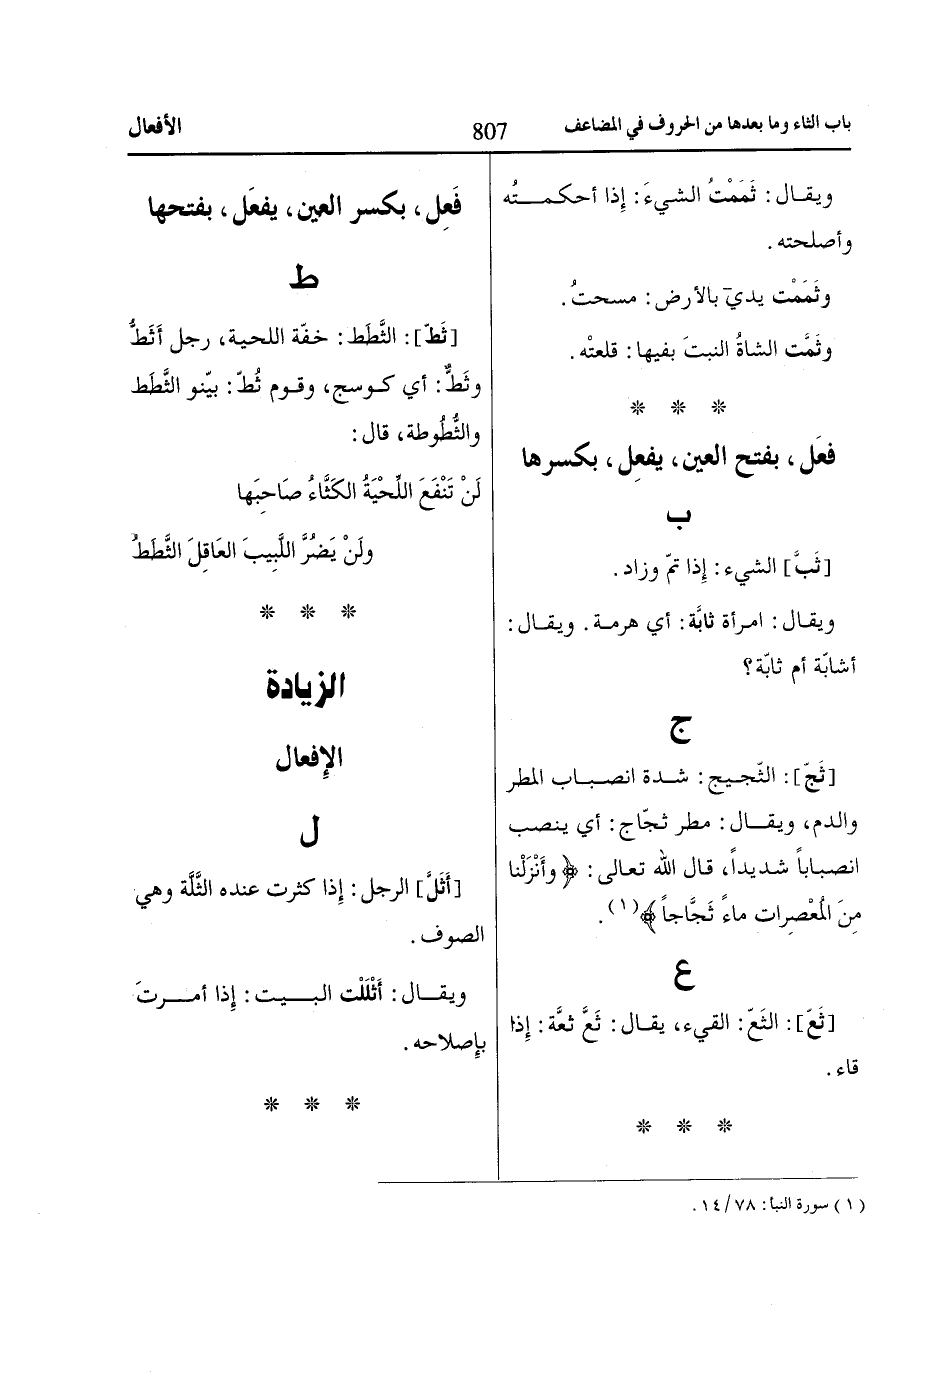 باب الثاء وما بعدها من الحروف في المضاعف
807
الأفعال
ويقال: ثَمَمْتُ الشيءَ: إِذا أحكمتُه
وأصلحته.
وثَمَمْت يديَ بالأرض: مسحتُ.
وثَمَّت الشاةُ النبتَ بفيها: قلعتْه.
* * *
فعَل، بفتح العين، يفعِل، بكسرها
ب
[ثَبَّ] الشيء: إِذا تمّ وزاد.
ويقال: امرأة ثابَّة: أي هرمة. ويقال:
أشابّة أم ثابّة؟
ج
[ثَجّ]: الثّجيج: شدة انصباب المطر
والدم، ويقال: مطر ثجّاج: أي ينصب
انصباباً شديداً، قال الله تعالى: ﴿وأَنْزَلْنا
مِنَ المُعْصِرات ماءً ثَجَّاجاً﴾(١).
ع
[ثَعّ]: الثَعّ: القيء، يقال: ثَعَّ ثعَّة: إِذا
قاء.
* * *
فَعِل، بكسر العين، يفعَل، بفتحها
ط
[ثَطّ]: الثَّطَط: خفّة اللحية، رجل أَثَطُّ
وثَطٌّ: أي كوسج، وقوم ثُطّ: بيّنو الثَّطَط
والثُّطُوطة، قال:
لَنْ تَنْفَعَ اللِّحْيَةُ الكَثَّاءُ صَاحِبَها
ولَنْ يَضُرَّ اللَّبِيبَ العَاقِلَ الثَّطَطُ
* * *
الزيادة
الإِفعال
ل
[أَثَلَّ] الرجل: إِذا كثرت عنده الثَّلَّة وهي
الصوف.
ويقال: أَثْلَلْت البيت: إِذا أمرتَ
بإِصلاحه.
* * *
(١) سورة النبأ: ٧٨/ ١٤.